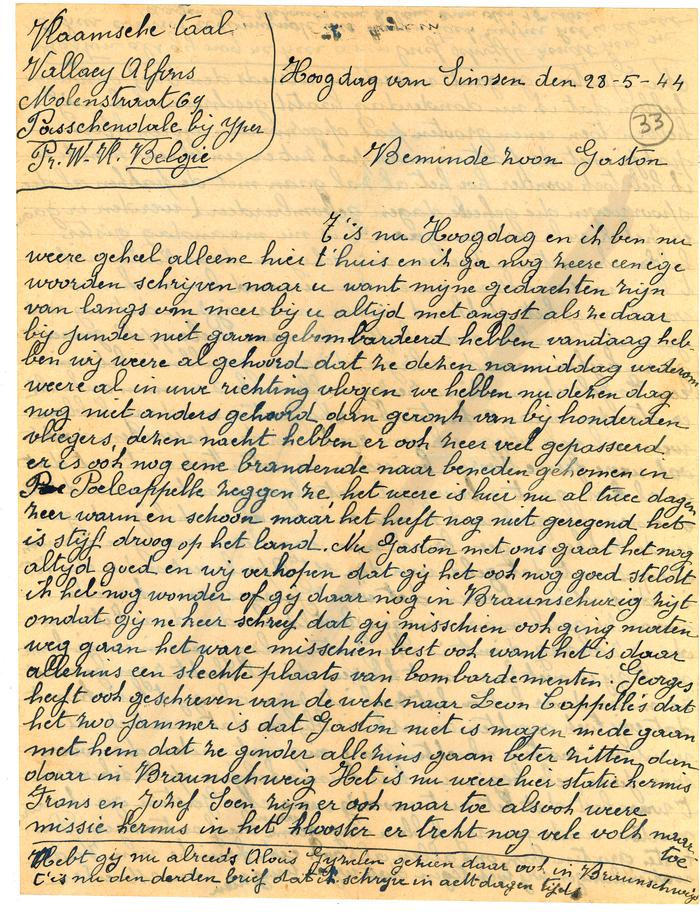 Vlaamsche taal
Vallaey Alfons
Molenstraat 69
Passchendale bij Yper
Pr. W. Vl. Belgie
Hoogdag van Sinxen den 28-5-44
33
Beminde zoon Gaston
T'is nu Hoogdag en ik ben nu
weere geheel alleene hier t'huis en ik ga nog zeere eenige
woorden schrijven naar u want mijne gedachten zijn
van langs om meer bij u altijd met angst als ze daar
bij junder niet gaan gebombardeerd hebben vandaag heb
ben wij weere al gehoord dat ze dezen namiddag wederom
weere al in uwe richting vlogen we hebben nu dezen dag
nog niet anders gehoord dan geronk van bij honderden
vliegers, dezen nacht hebben er ook zeer veel gepasseerd
er is ook nog eene brandende naar beneden gekomen in
Poelcappelle zeggen ze, het weere is hier nu al twee dagen
zeer warm en schoon maar het heeft nog niet geregend het
is stijf droog op het land. Nu Gaston met ons gaat het nog
altijd goed en wij verhopen dat gij het ook nog goed steldt
ik heb nog wonder of gij daar nog in Braunschweig zijt
omdat gij ne keer schreef dat gij misschien ook ging moeten
weg gaan het ware misschien best ook want het is daar
allezins een slechte plaats van bombardementen. Georges
heeft ook geschreven van de weke naar Leon Cappelle's dat
het zoo jammer is dat Gaston niet is mogen mede gaan
met hem dat ze ginder allezins gaan beter zitten dan
daar in Braunschweig Het is nu weere hier statie kermis
Frans en Jozef Soen zijn er ook naar toe alsook weere
missie kermis in het klooster er trekt nog vele volk naar
toe
Hebt gij nu alreeds Alois gezien daar ook in Braunschweig
t'is nu den derden brief dat ik schrijve in acht dagen tijds